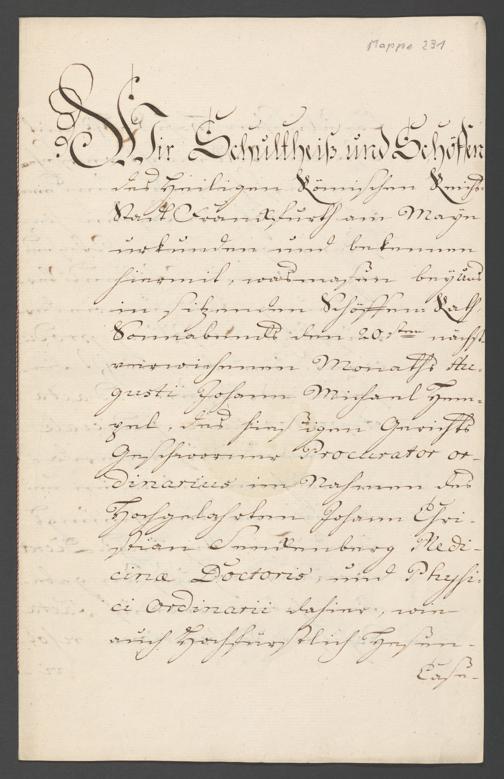 Mappe 231
Wir Schultheiß und Schöffen
des Heiligen Römischen Reichs-
Stadt Franckfurth am Mayn
urkunden und bekennen
hiermit, wasmasen bey uns
in sitzenden Schöffen-Rath
Sonnabends den 20.sten nächst
verwichenen Monaths Au-
gusti Johann Michael Hem-
pel, des hiesigen Gerichts
Geschworner Procurator or-
dinarius im Nahmen des
Hochgelahrten Johann Chri-
stian Senckenberg Medi-
cinæ Doctoris, und Physi-
ci ordinarii dahier, wie
auch Hochfürstlich Hesen-
Casse-